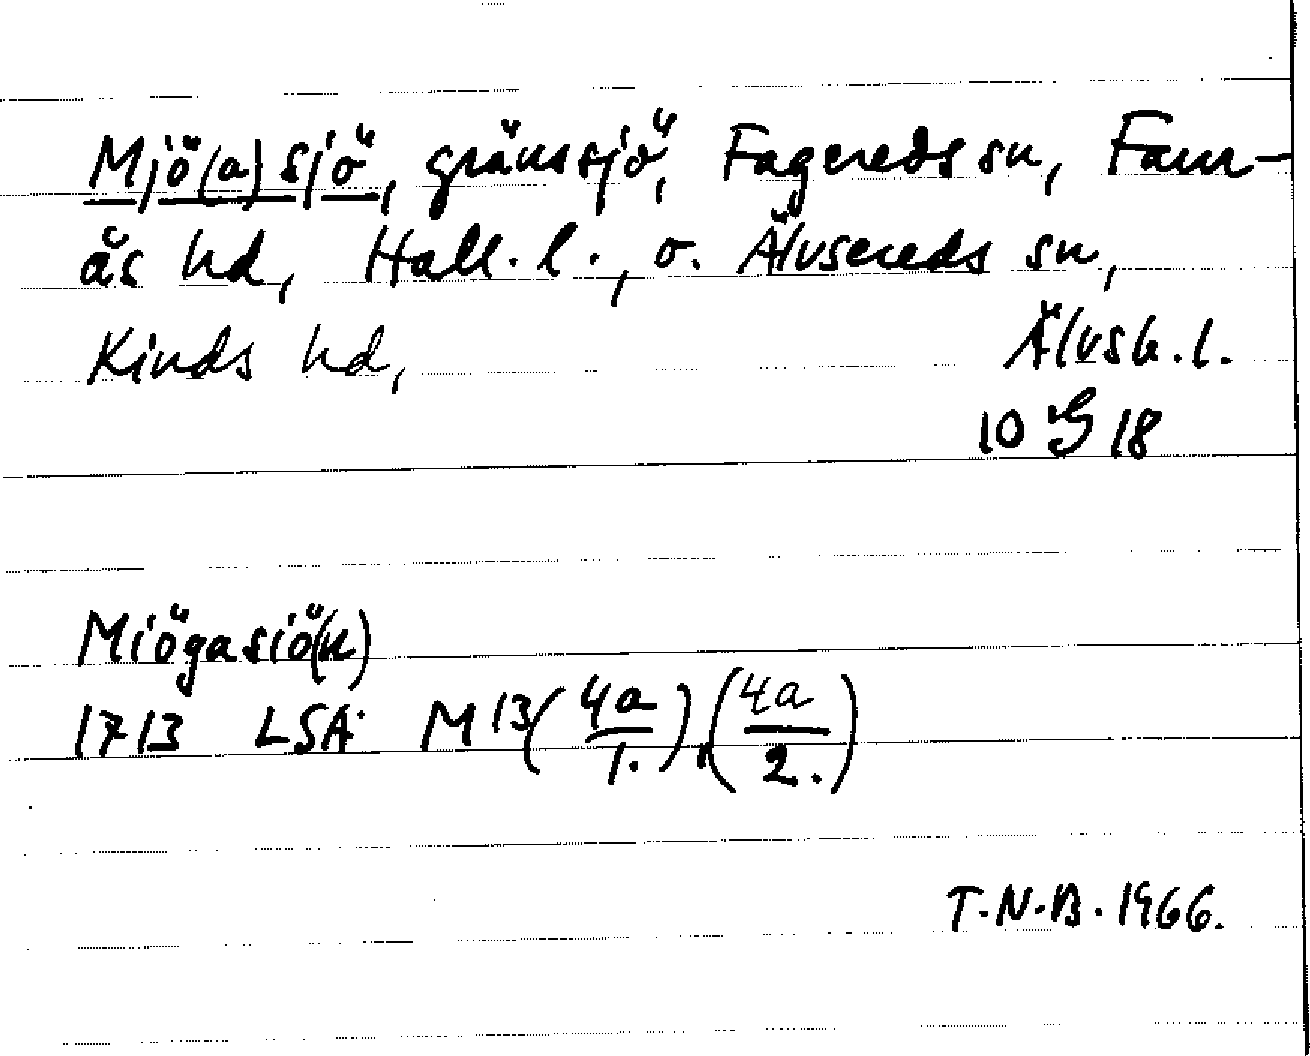 Mjö(a)sjö, gränssjö, Fagereds sn, Faur-
ås hd, Hall. l., o. Älvsereds sn,
Kinds hd, Älvsb. l.
10 G 18
Miögasiö(n)
1713 LSA M13(4a/1.), (4a/2.)
T.N.B. 1966.